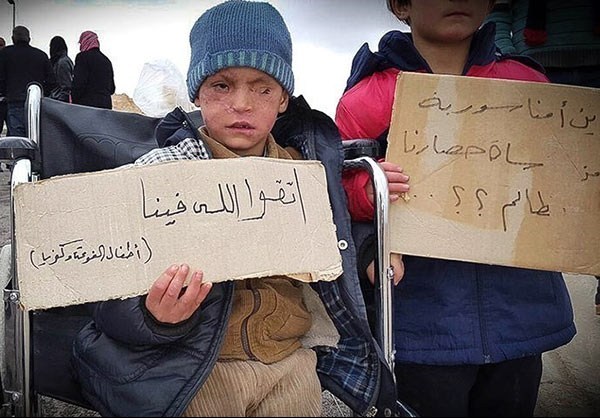 اتقوا الله فينا
(أطفال الفوعة وكفريا)
ين أمنا سورية
من ساة حصارنا
ظالم ؟؟ ...